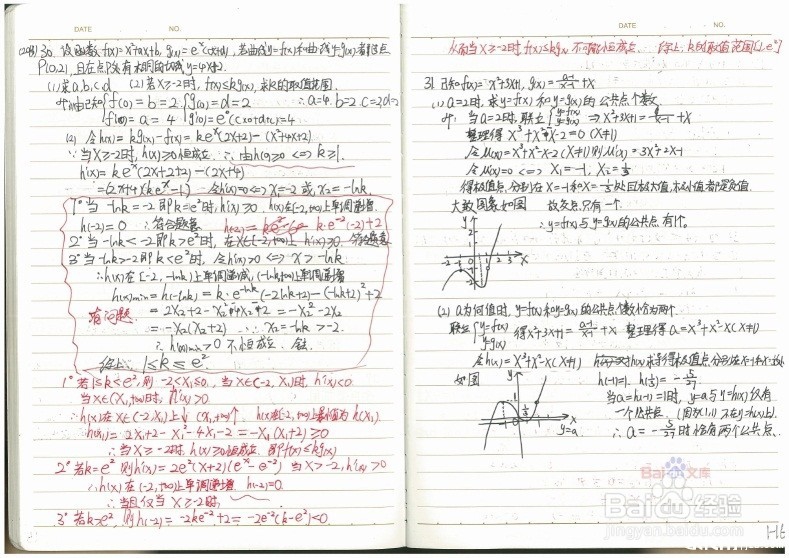 DATE NO.
30. 设函数f(x)=x²+ax+b, g(x)=e^x(cx+d), 若曲线y=f(x)和曲线y=g(x)都过点
P(0,2), 且在点P处有相同的切线y=4x+2.
(1)求a,b,c,d (2)若x≥-2时, f(x)≤kg(x), 求k的取值范围.
由已知{f(0)=b=2 {g(0)=d=2 ∴a=4. b=2 c=2
f'(0)=a=4
(2) 令h(x)=kg(x)-f(x)=ke^x(2x+2)-(x²+4x+2)
∵当x≥-2时, h(x)≥0恒成立 ∴由h(0)≥0 <=> k≥1.
h'(x)=ke^x(2x+2+2)-(2x+4)
=(2x+4)(ke^x-1) 令h'(x)=0<=>x₁=-2 或, x₂=-lnk.
1°当-lnk=-2即k=e²时, h'(x)≥0. h(x)在[-2,+∞)上单调递增.
h(-2)=0 ∴符合题意 h(-2)= k·e^-2(-2)+2
2°当-lnk<-2即k>e²时, 在x∈[-2,+∞)上 h'(x)≥0 符合题意
3°当-lnk>-2即k<e²时, 令h'(x)>0 <=> x>-lnk.
∴h(x)在[-2,-lnk)上单调减, (-lnk,+∞)上单调递增
h(x)min=h(-lnk)=k·e^-lnk(-2lnk+2)-(-lnk+2)²+2
有问题. =2x₂+2-x₂²-4x₂-2=-x₂²-2x₂
=-x₂(x₂+2) ∵x₂=-lnk>-2.
∴h(x)min>0不恒成立. 舍.
综上: 1≤k≤e²
1°若1≤k<e², 则-2<x₁≤0, 当x∈(-2,x₁)时, h'(x)<0.
当x∈(x₁,+∞)时, h'(x)>0
∴h(x)在x∈(-2,x₁)上↓ (x₁,+∞)↑, h(x)在[-2,+∞)上最小值为h(x₁).
h(x₁)=2x₁+2-x₁²-4x₁-2=-x₁(x₁+2)≥0
∴当x≥-2时. h(x)≥0恒成立. 即f(x)≤kg(x)
2°若k=e² 则h'(x)=2e²(x+2)(e^x-e^-2) 当x>-2, h'(x)>0
∴h(x)在(-2,+∞)上单调递增 h(-2)=0.
∴当且仅当x≥-2时,
3°若k>e², 则h(-2)=-2ke^-2+2=-2e^-2(k-e²)<0
DATE NO.
从而当x≥-2时, f(x)≤kg(x)不可能恒成立. 综上: k的取值范围[1,e²]
31. 已知f(x)=x²+3x+1, g(x)=(a-1)/(x-1)+x
(1)a=2时, 求y=f(x)和y=g(x)的公共点个数
当a=2时, 联立{y=f(x) y=g(x) => x²+3x+1=1/(x-1)+x
整理得x³+x²-x-2=0 (x≠1)
令u(x)=x³+x²-x-2(x≠1)则u'(x)=3x²+2x-1
令u'(x)=0 <=> x₁=-1, x₂=1/3
得极值点, 分别在x=-1和x=1/3处且极大值, 极小值都是负值.
大致图象如图 故交点只有一个.
∴y=f(x)与y=g(x)的公共点有1个.
y
2
1
-2 -1 0 1 2 3 x
(2) a为何值时, y=f(x)和y=g(x)的公共点个数恰为两个
联立{y=f(x) y=g(x) 得x²+3x+1=(a-1)/(x-1)+x 整理得a=x³+x²-x(x≠1)
令h(x)=x³+x²-x(x≠1) 对h(x)求导得极值点分别在x=-1和x=1/3处
如图 h(-1)=1. h(1/3)=-5/27
当a=h(-1)=1时, y=a与y=h(x)仅有
一个公共点. (因为(1,1)不在y=h(x)上).
y=a. ∴a=-5/27时恰有两个公共点.
Baidu文库
Baidu经验
jingyan.baidu.com
1-16